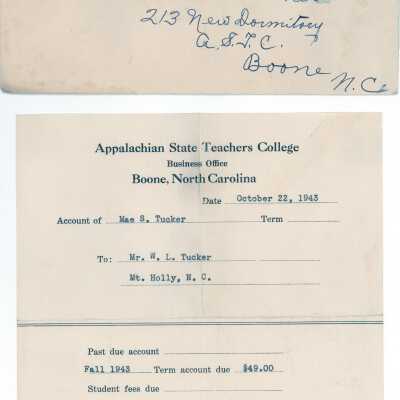 213 New Dormitory
A.S.T.C.
Boone
N.C.
Appalachian State Teachers College
Business Office
Boone, North Carolina
Date October 22, 1943
Account of Mae S. Tucker Term
To: Mr. W. L. Tucker
Mt. Holly, N. C.
Past due account
Fall 1943 Term account due $49.00
Student fees due